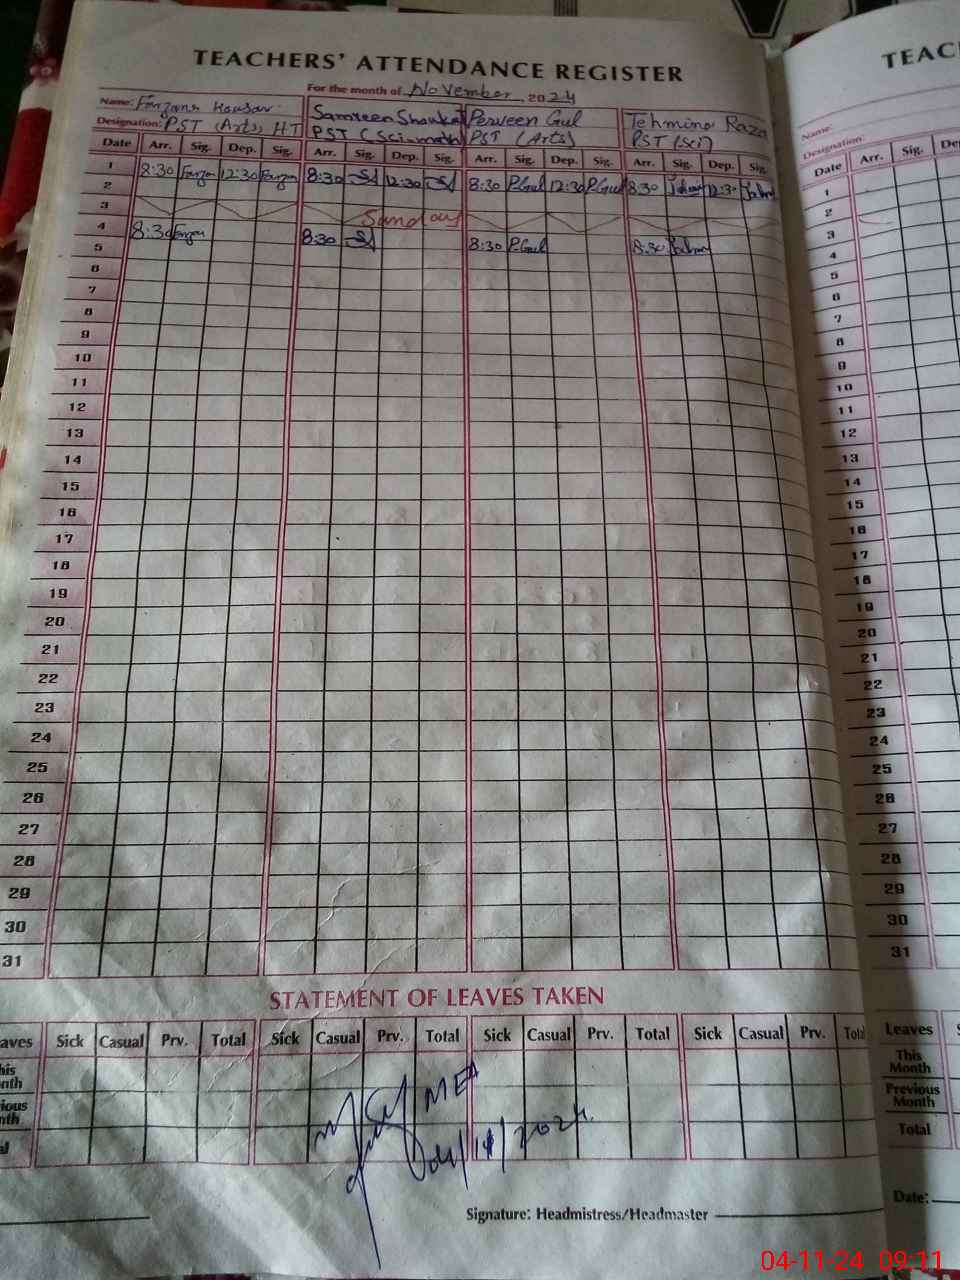 TEACHERS' ATTENDANCE REGISTER
For the month of November 2024
Name: Farzana Kousar
Designation: PST (Arts) HT
Samreen Shaukat
PST (Sci, math)
Perveen Gul
PST (Arts)
Tehmina Raza
PST (Sci)
Date Arr. Sig. Dep. Sig. Arr. Sig. Dep. Sig. Arr. Sig. Dep. Sig. Arr. Sig. Dep. Sig.
1 8:30 Farzan 12:30 Farzan 8:30 12:30 8:30 P.Gul 12:30 P.Gul 8:30 12:30
2
3 Sunday
4 8:30 Farzan 8:30 8:30 P.Gul 8:30
5
6
7
8
9
10
11
12
13
14
15
16
17
18
19
20
21
22
23
24
25
26
27
28
29
30
31
STATEMENT OF LEAVES TAKEN
aves Sick Casual Prv. Total Sick Casual Prv. Total Sick Casual Prv. Total Sick Casual Prv. Total
his
nth
ious
nth
al
MEA
04/11/2024.
Signature: Headmistress/Headmaster
TEAC
Name:
Designation:
Date Arr. Sig. Dep
1
2
3
4
5
6
7
8
9
10
11
12
13
14
15
16
17
18
19
20
21
22
23
24
25
26
27
28
29
30
31
Leaves S
This
Month
Previous
Month
Total
Date:
04-11-24 09:11